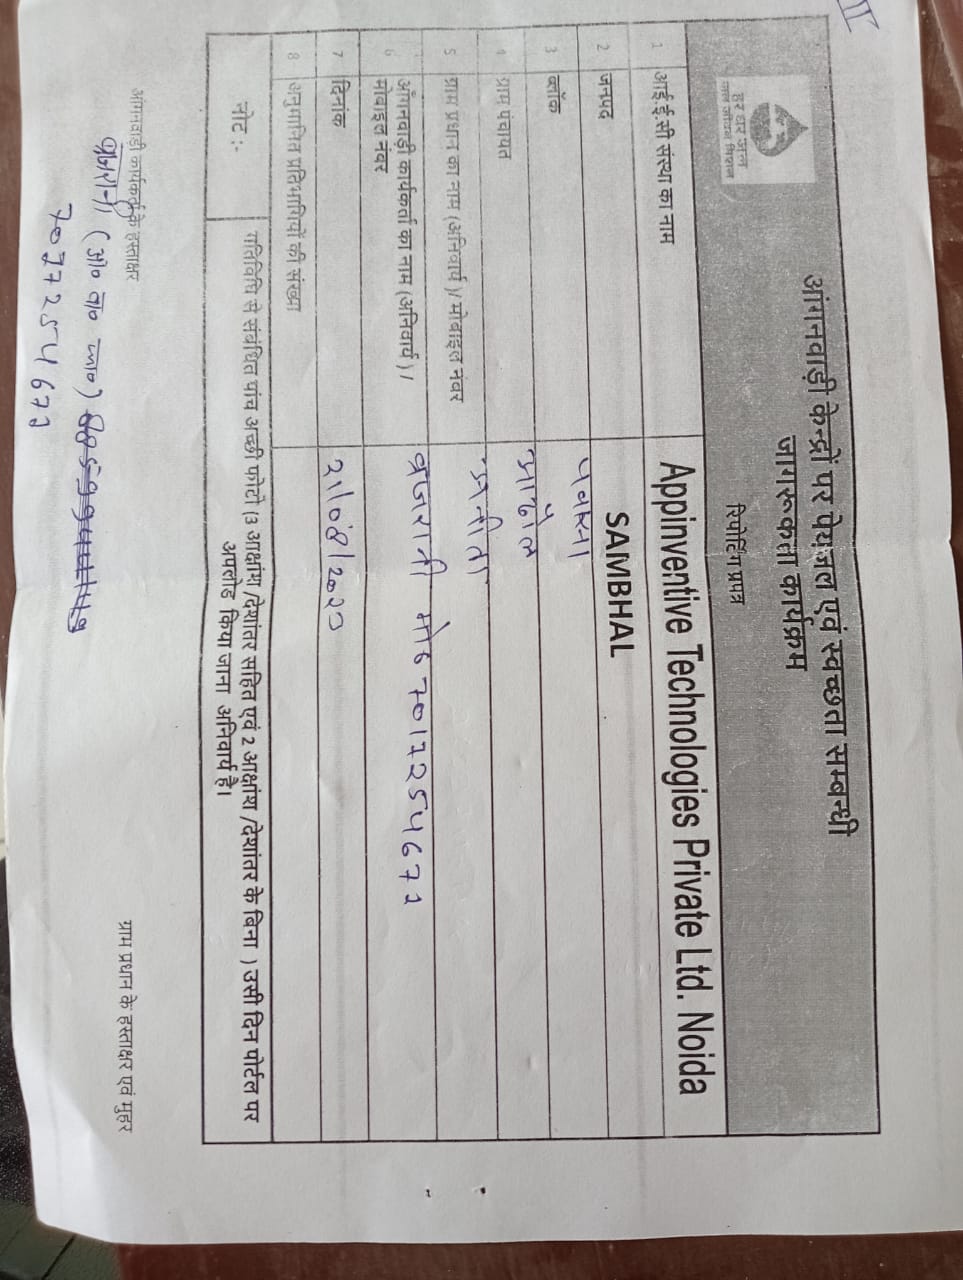 III
हर घर जल
जल जीवन मिशन
आंगनवाड़ी केन्द्रों पर पेयजल एवं स्वच्छता सम्बन्धी
जागरूकता कार्यक्रम
रिपोर्टिंग प्रपत्र
1 आई.ई.सी संस्था का नाम Appinventive Technologies Private Ltd. Noida
2 जनपद SAMBHAL
3 ब्लॉक पवांसा
4 ग्राम पंचायत
5 ग्राम प्रधान का नाम (अनिवार्य)/ मोबाइल नंबर अनीता
6 आँगनवाड़ी कार्यकर्ता का नाम (अनिवार्य) / मोबाइल नंबर ब्रजरानी मो० 7017254672
7 दिनांक 21/08/2023
8 अनुमानित प्रतिभागियों की संख्या
नोट :- गतिविधि से संबंधित पांच अच्छी फोटो (3 आक्षांश /देशांतर सहित एवं 2 आक्षांश /देशांतर के बिना ) उसी दिन पोर्टल पर
अपलोड किया जाना अनिवार्य है।
आंगनवाड़ी कार्यकर्ता के हस्ताक्षर ग्राम प्रधान के हस्ताक्षर एवं मुहर
ब्रजरानी (आं० वा० का०)